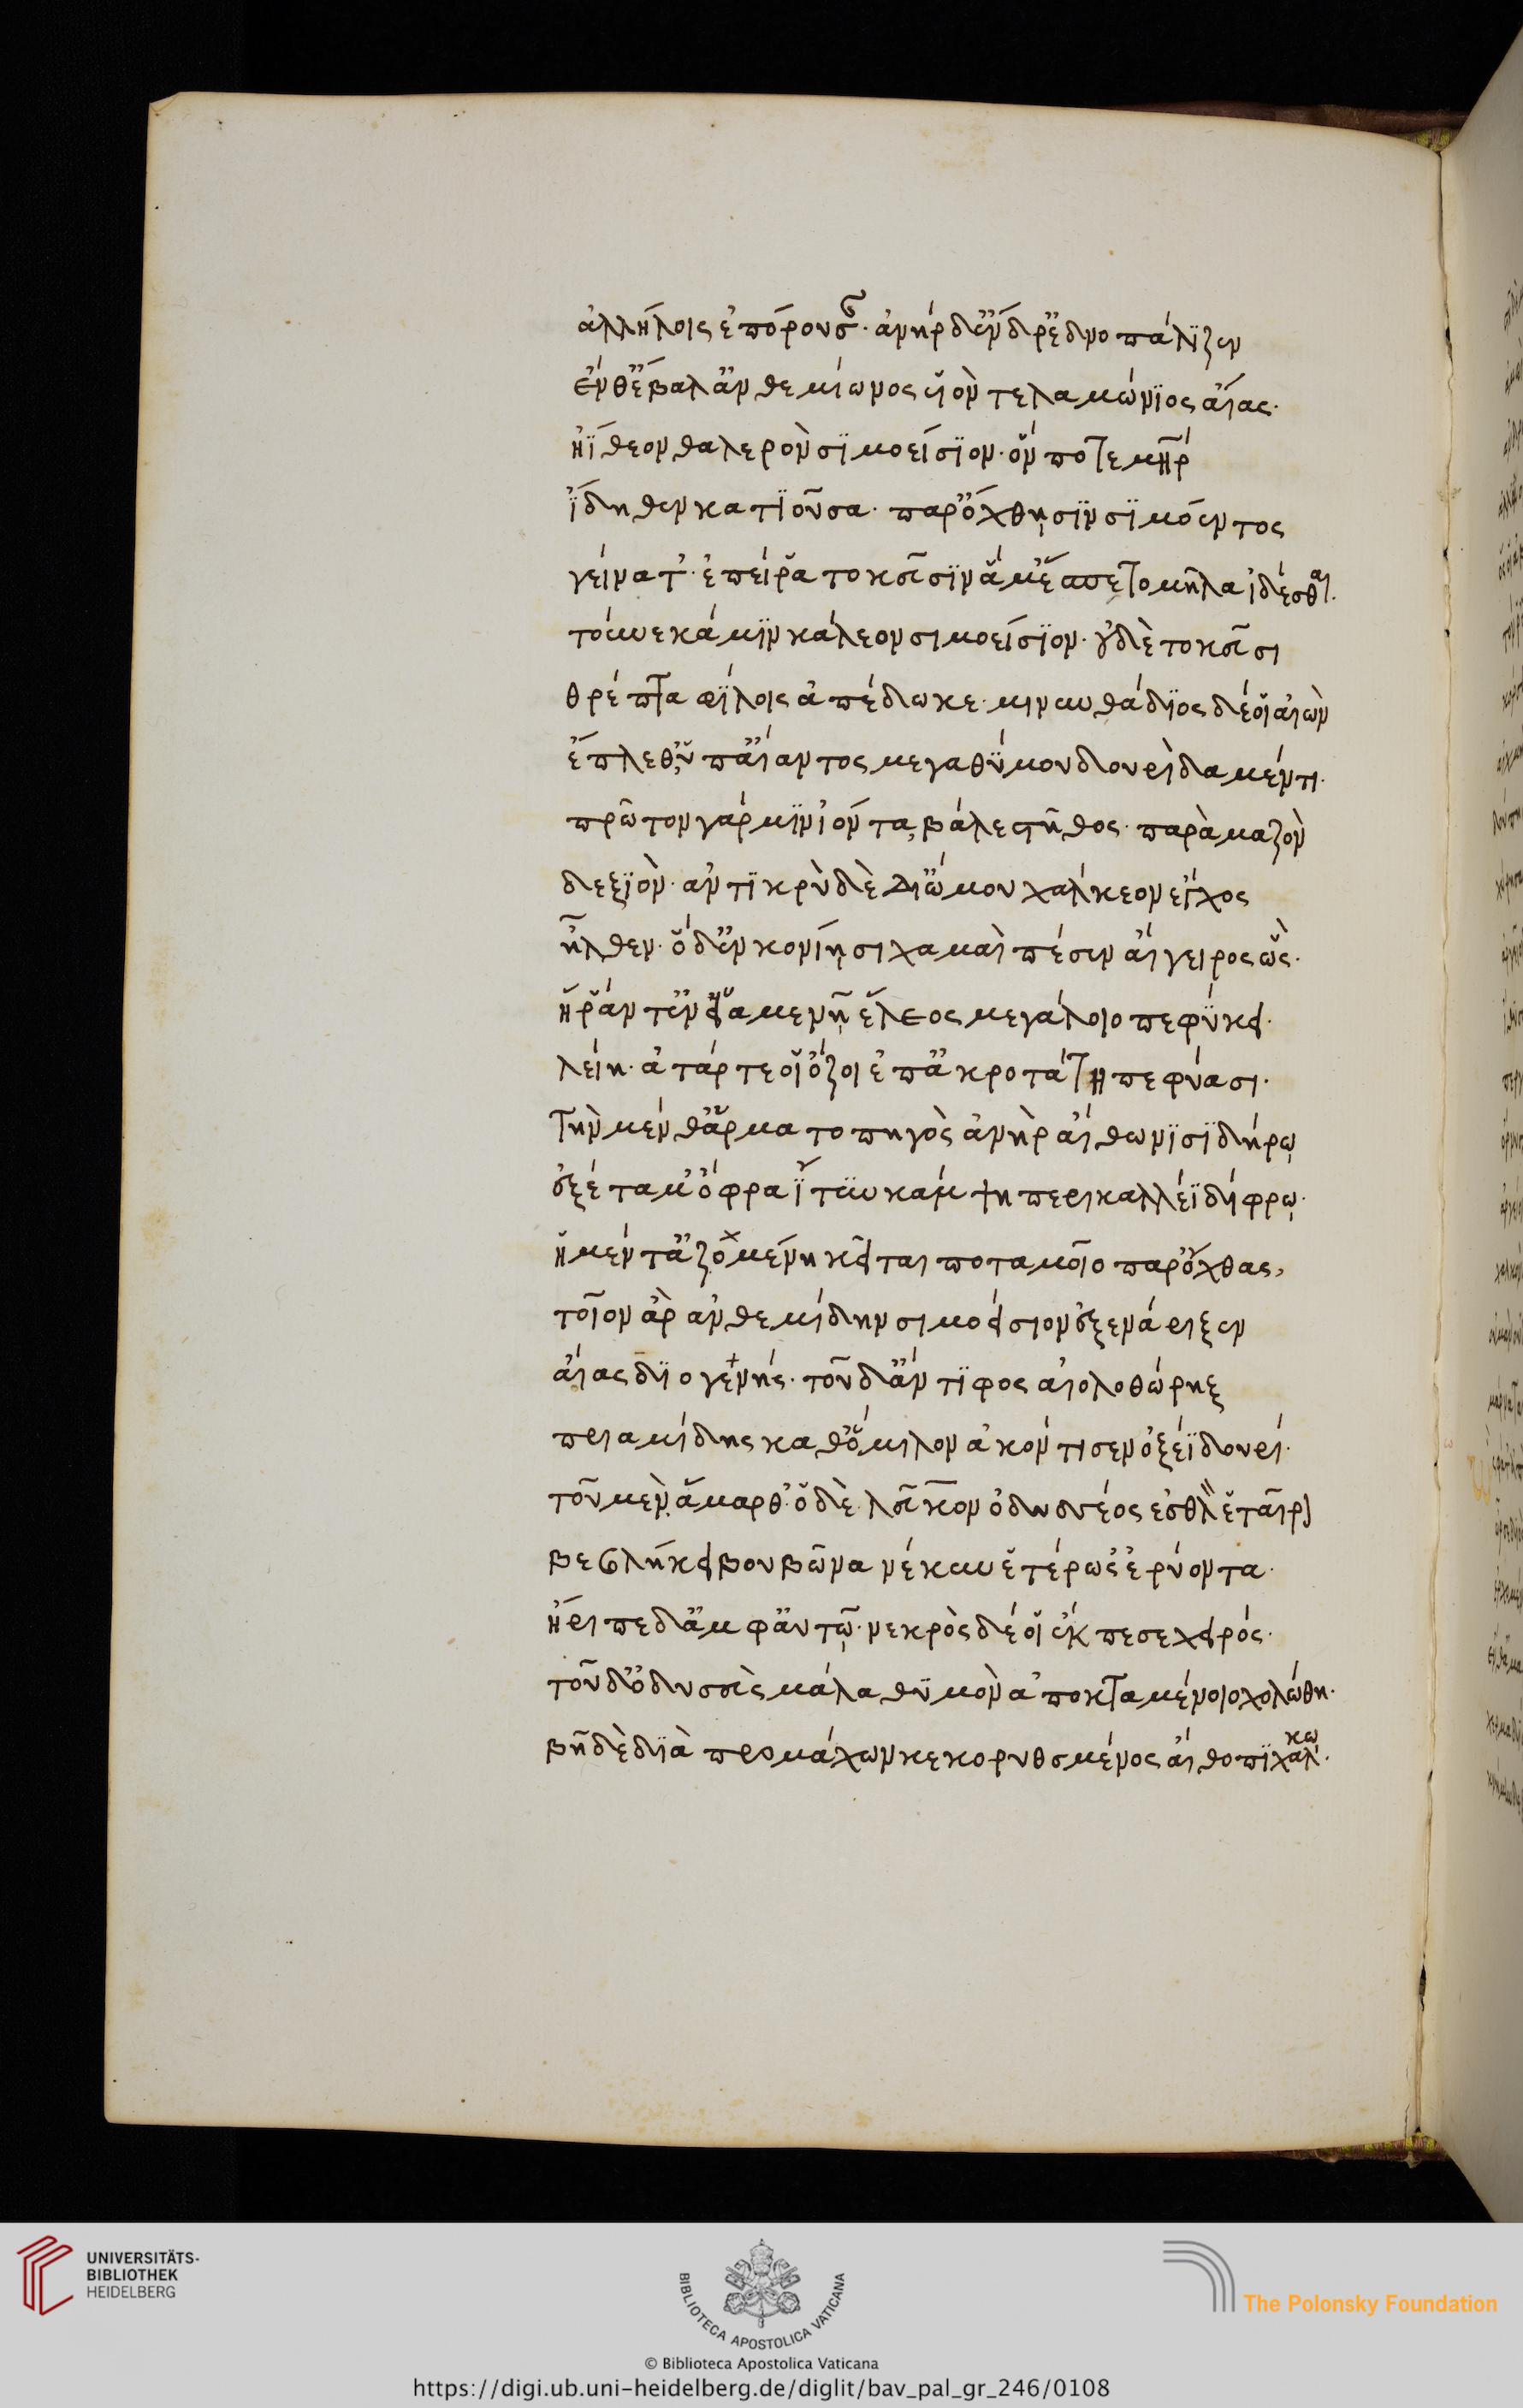 ἀλλήλοις ἐπόρουσαν· ἀνὴρ δ' ἄνδρ' ἐδνοπάλιζεν
ἔνθ' ἔβαλ' ἀνθεμίωνος υἱὸν τελαμώνιος αἴας·
ἠΐθεον θαλερὸν σιμοείσιον· ὅν ποτε μήτηρ
ἴδηθεν κατιοῦσα· παρ' ὄχθῃσιν σιμόεντος
γείνατ'· ἐπεί ῥα τοκεῦσιν ἅμ' ἕσπετο μῆλα ἰδέσθαι·
τοὔνεκά μιν κάλεον σιμοείσιον· οὐδὲ τοκεῦσι
θρέπτα φίλοις ἀπέδωκε· μινυνθάδιος δέ οἱ αἰὼν
ἔπλεθ' ὑπ' αἴαντος μεγαθύμου δουρὶ δαμέντι·
πρῶτον γάρ μιν ἰόντα, βάλε στῆθος· παρὰ μαζὸν
δεξιὸν· ἀντικρὺ δὲ δι' ὤμου χάλκεον ἔγχος
ἦλθεν· ὁ δ' ἐν κονίῃσι χαμαὶ πέσεν αἴγειρος ὥς·
ἥ ῥά τ' ἐν εἱαμενῇ ἕλεος μεγάλοιο πεφύκει·
λείη· ἀτάρ τε οἱ ὄζοι ἐπ' ἀκροτάτη πεφύασι·
τὴν μέν θ' ἁρματοπηγὸς ἀνὴρ αἴθωνι σιδήρῳ
ἐξέταμ' ὄφρα ἴτυν κάμψη περικαλλέϊ δίφρῳ·
ἡ μέν τ' ἀζομένη κεῖται ποταμοῖο παρ' ὄχθας,
τοῖον ἄρ' ἀνθεμίδην σιμοείσιον ἐξενάριξεν
αἴας διογενής· τοῦ δ' ἄντιφος αἰολοθώρηξ
πριαμίδης καθ' ὅμιλον ἀκόντισεν ὀξέϊ δουρί·
τοῦ μὲν ἅμαρθ'· ὁ δὲ λεῦκον ὀδυσσέος ἐσθλὸν ἑταῖρον
βεβλήκει βουβῶνα νέκυν ἑτέρωσ' ἐρύοντα·
ἤριπε δ' ἀμφ' αὐτῷ· νεκρὸς δέ οἱ ἔκπεσε χειρός·
τοῦ δ' ὀδυσεὺς μάλα θυμὸν ἀποκταμένοιο χολώθη·
βῆ δὲ διὰ προμάχων κεκορυθσμένος αἴθοπι χαλκῷ·
UNIVERSITÄTS-
BIBLIOTHEK
HEIDELBERG
BIBLIOTECA APOSTOLICA VATICANA
The Polonsky Foundation
© Biblioteca Apostolica Vaticana
https://digi.ub.uni-heidelberg.de/diglit/bav_pal_gr_246/0108